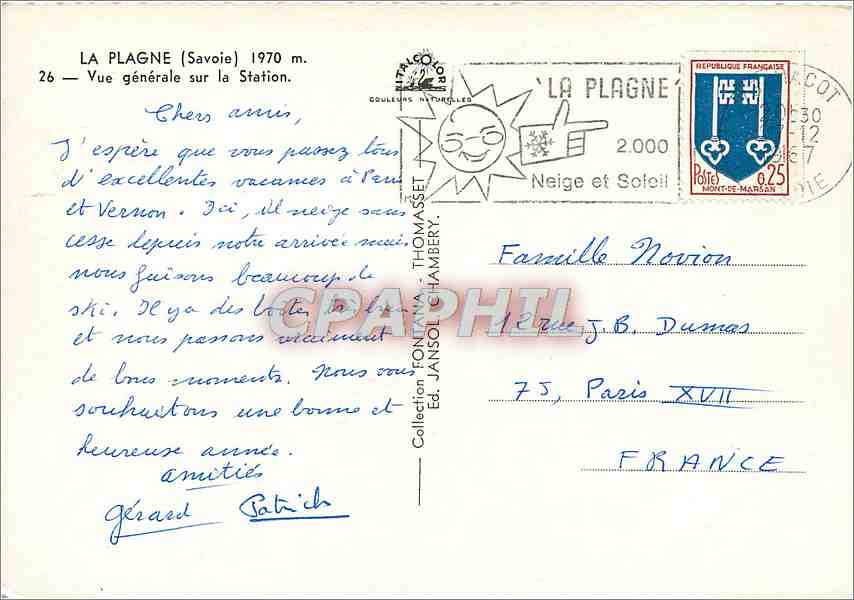 LA PLAGNE (Savoie) 1970 m.
26 — Vue générale sur la Station.
Chers amis,
J'espère que vous passez tous
d'excellentes vacances à Paris
et Vernon. Ici, il neige sans
cesse depuis notre arrivée mais
nous faisons beaucoup de
ski. Il y a des
et nous passons vraiment
de bons moments. Nous vous
souhaitons une bonne et
heureuse année.
amitiés
Gérard Patrick
ITALCOLOR
COULEURS NATURELLES
Collection FONTANA - THOMASSET
Ed. JANSOL, CHAMBERY.
LA PLAGNE
2.000
Neige et Soleil
REPUBLIQUE FRANÇAISE
POSTES 0,25
MONT-DE-MARSAN
MACOT
30
12
1967
Famille Novion
12 rue J.B. Dumas
75, Paris XVII
FRANCE
CPAPHIL